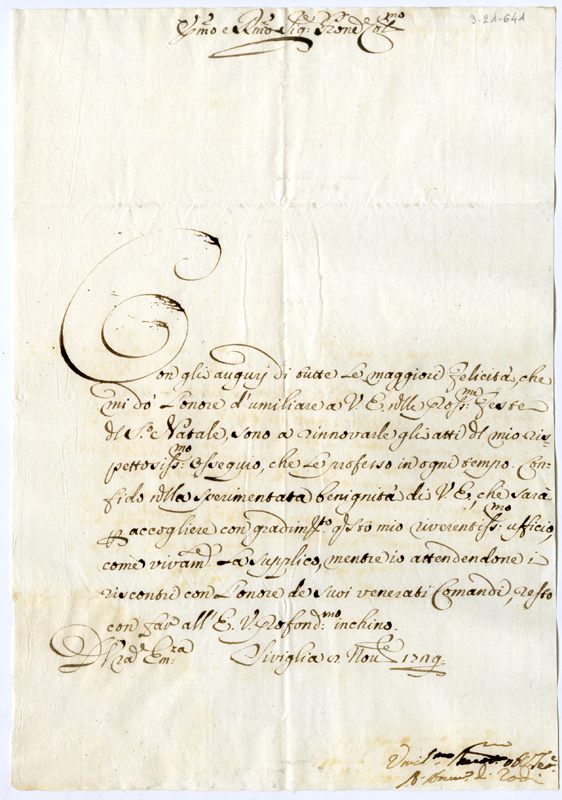 3-21-641
Sig:re
Con gli augurj di tutte le maggiori felicità, che
mi dò l'onore d'umiliare a V. E. nelle pross:me Feste
del S.o Natale, sono a rinnovarle gli atti del mio ris
pettosiss:mo ossequio, che le professo in ogni tempo. Con
fido nella sperimentata benignità di V. E., che sarà
accogliere con gradim:to q̃sto mio riverentiss:mo ufficio,
come vivam:te la supplico, mentre io attendendone i
riscontri con l'onore de suoi venerati Comandi, resto
con far all'E. V. profond:mo inchino.
Di V.ra Em:za Siviglia Nov:e